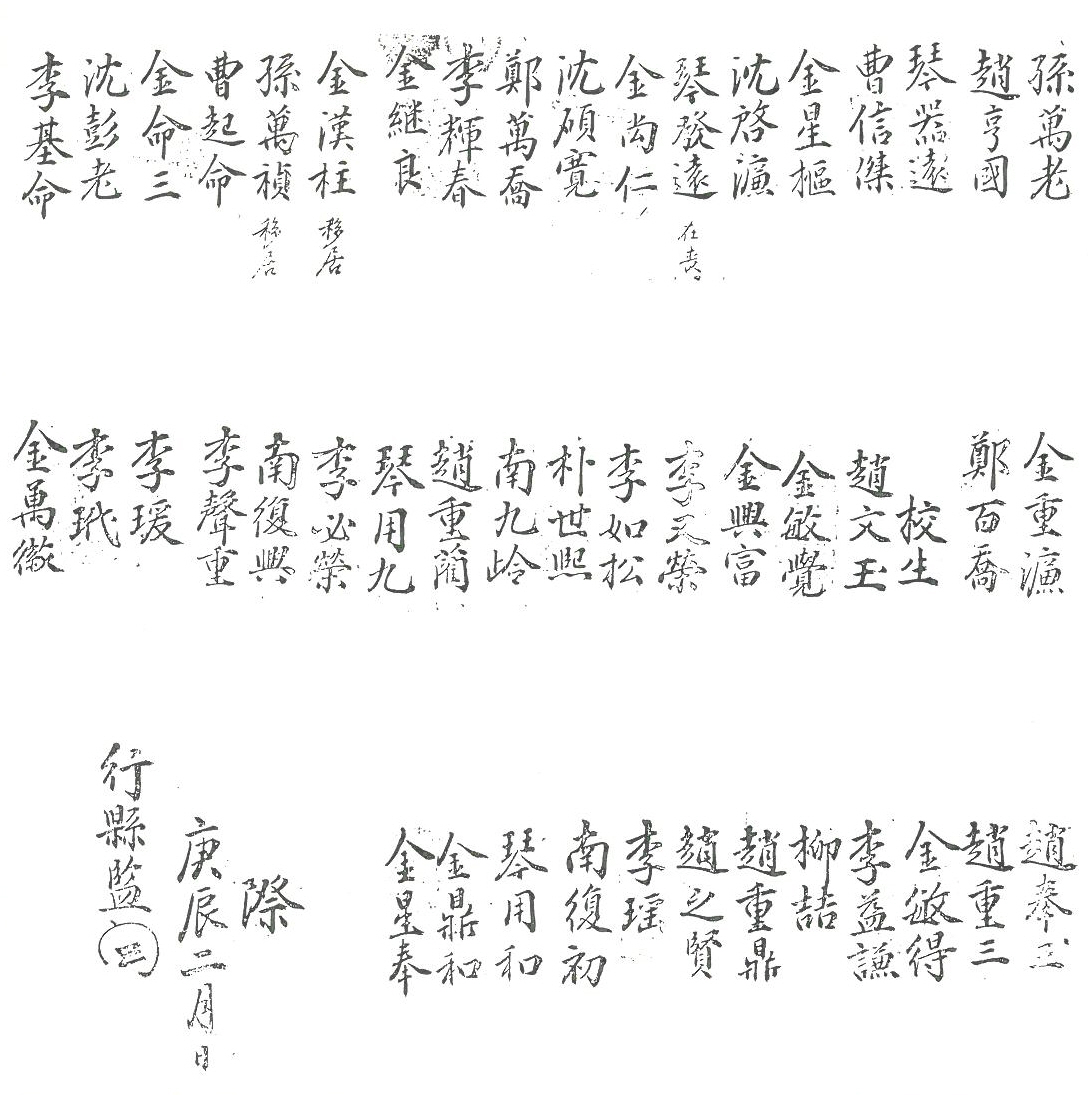 孫萬老
趙亨國
琴器遠
曹信傑
金星樞
沈啓濂
琴發遠 在喪
金尚仁
沈碩寬
鄭萬喬
李輝春
金継良
金漢柱 移居
孫萬禎 移居
曹起命
金命三
沈彭老
李基命
金重濂
鄭百喬
校生
趙文玉
金敏覺
金興富
李天榮
李如松
朴世熙
南九岭
趙重蘭
琴用九
李必榮
南復興
李聲重
李瑗
李玳
金萬徽
趙奉玉
趙重三
金敏得
李益謙
柳喆
趙重鼎
趙之賢
李瑤
南復初
琴用和
金鼎和
金星奉
際
庚辰二月日
行縣監